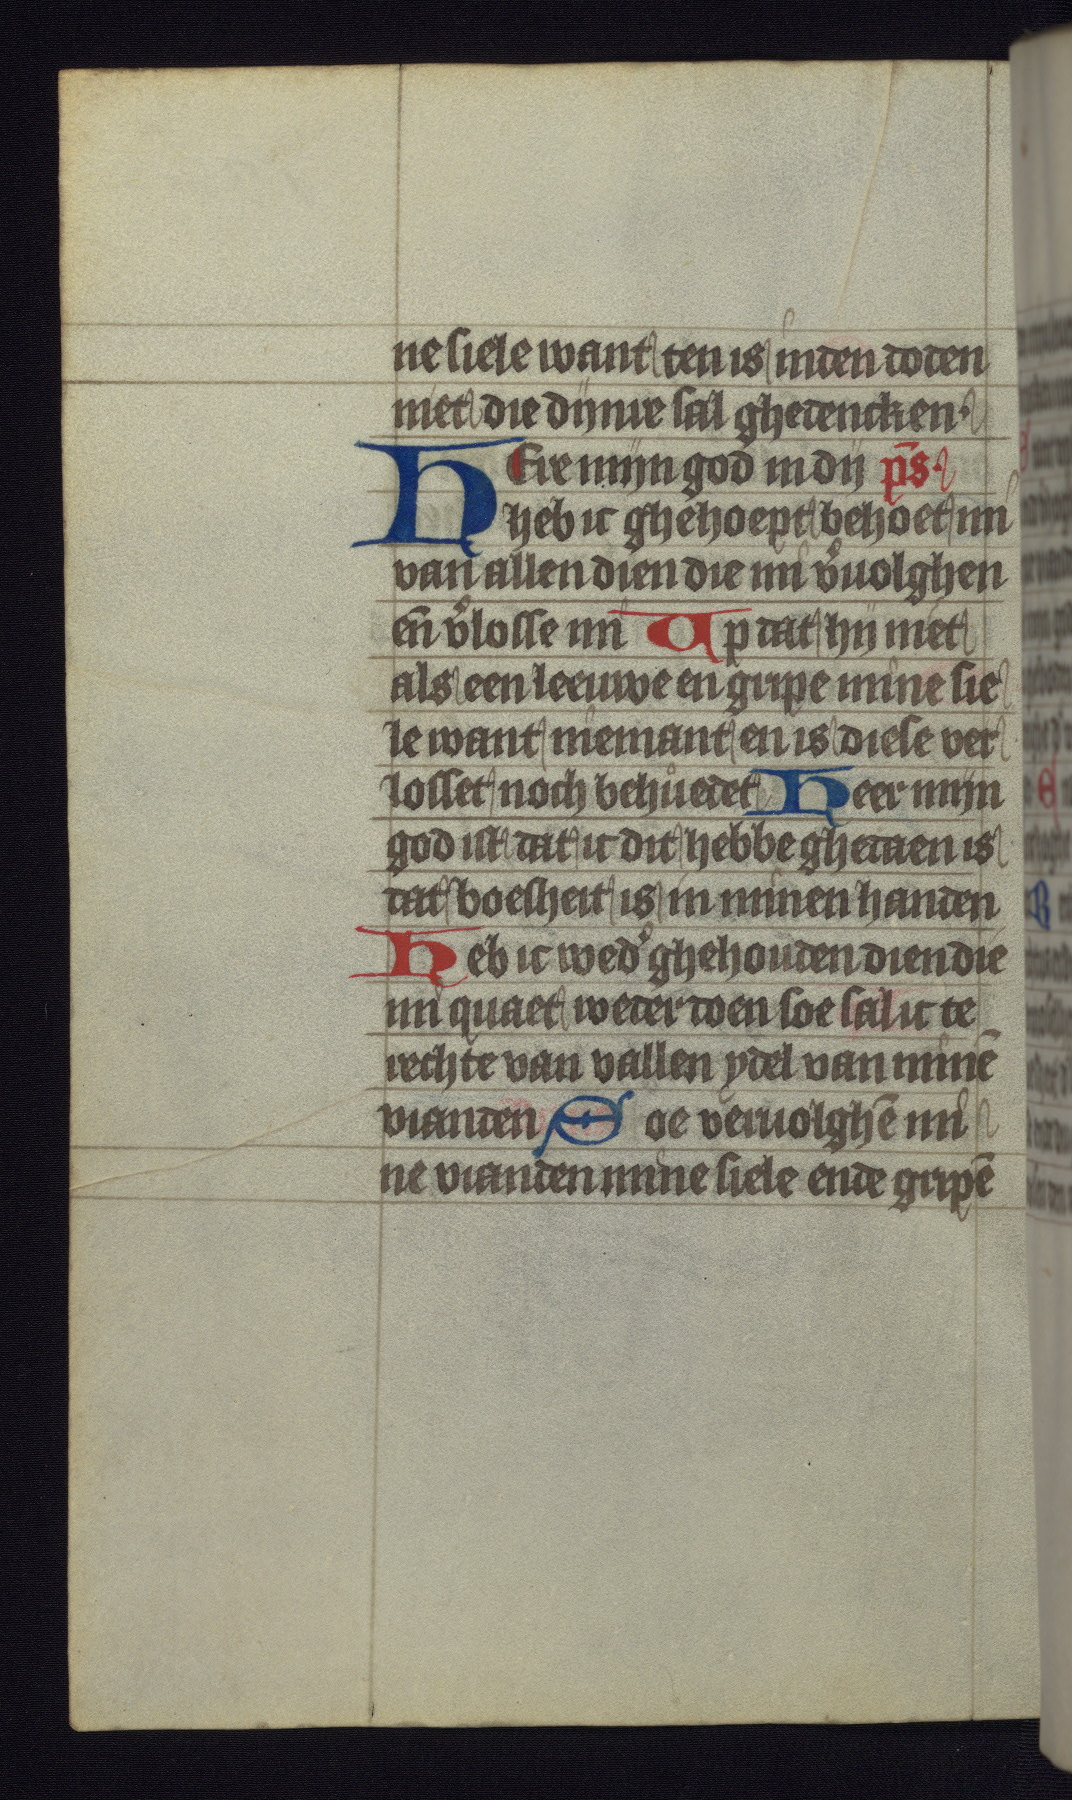 ne siele want ten is inden doden
niet die dijnre sal ghedencken.
HEre mijn god in dij ps̄.
heb ic ghehoept behoet mi
van allen dien die mi v̉uolghen
en̄ v̉losse mi Up dat hij niet
als een leeuwe en gripe mine sie
le want niemant en is diese ver
losset noch behuedet Heer mijn
god ist dat ic dit hebbe ghedaen is
dat boesheit is in minen handen
Heb ic wed̉ ghehouden dien die
mi quaet weder doen soe sal ic te
rechte van vallen ydel van minē
vianden Soe veruolghē mi
ne vianden mine siele ende gripē